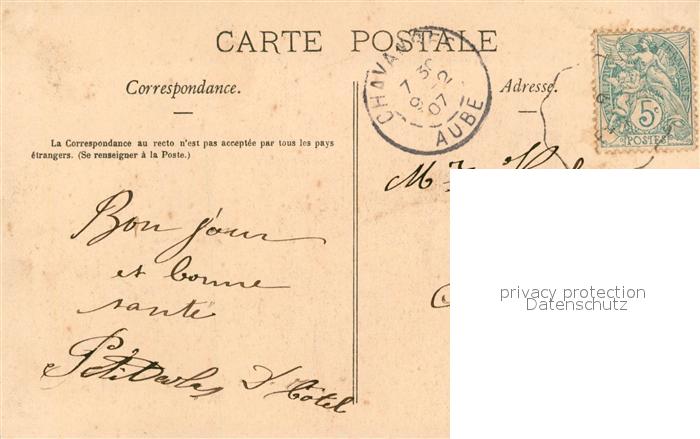 CARTE POSTALE
Correspondance.
La Correspondance au recto n'est pas acceptée par tous les pays
étrangers. (Se renseigner à la Poste.)
Bon jour
et bonne
santé
D'Hôtel
CHAVANGES
7 30
07
AUBE
Adresse.
5c
POSTES
M
privacy protection
Datenschutz